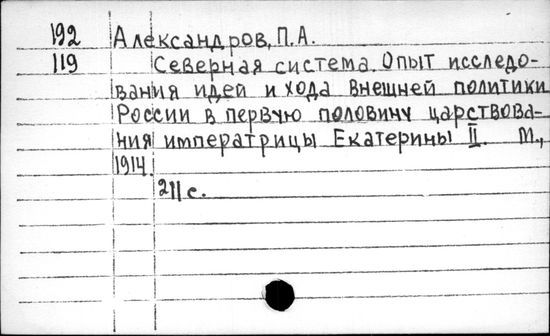 192 Александров, П.А.
119 Северная система. Опыт исследо-
вания идей и хода внешней политики
России в первую половину царствова-
ния императрицы Екатерины II. М.,
1914.
211 с.